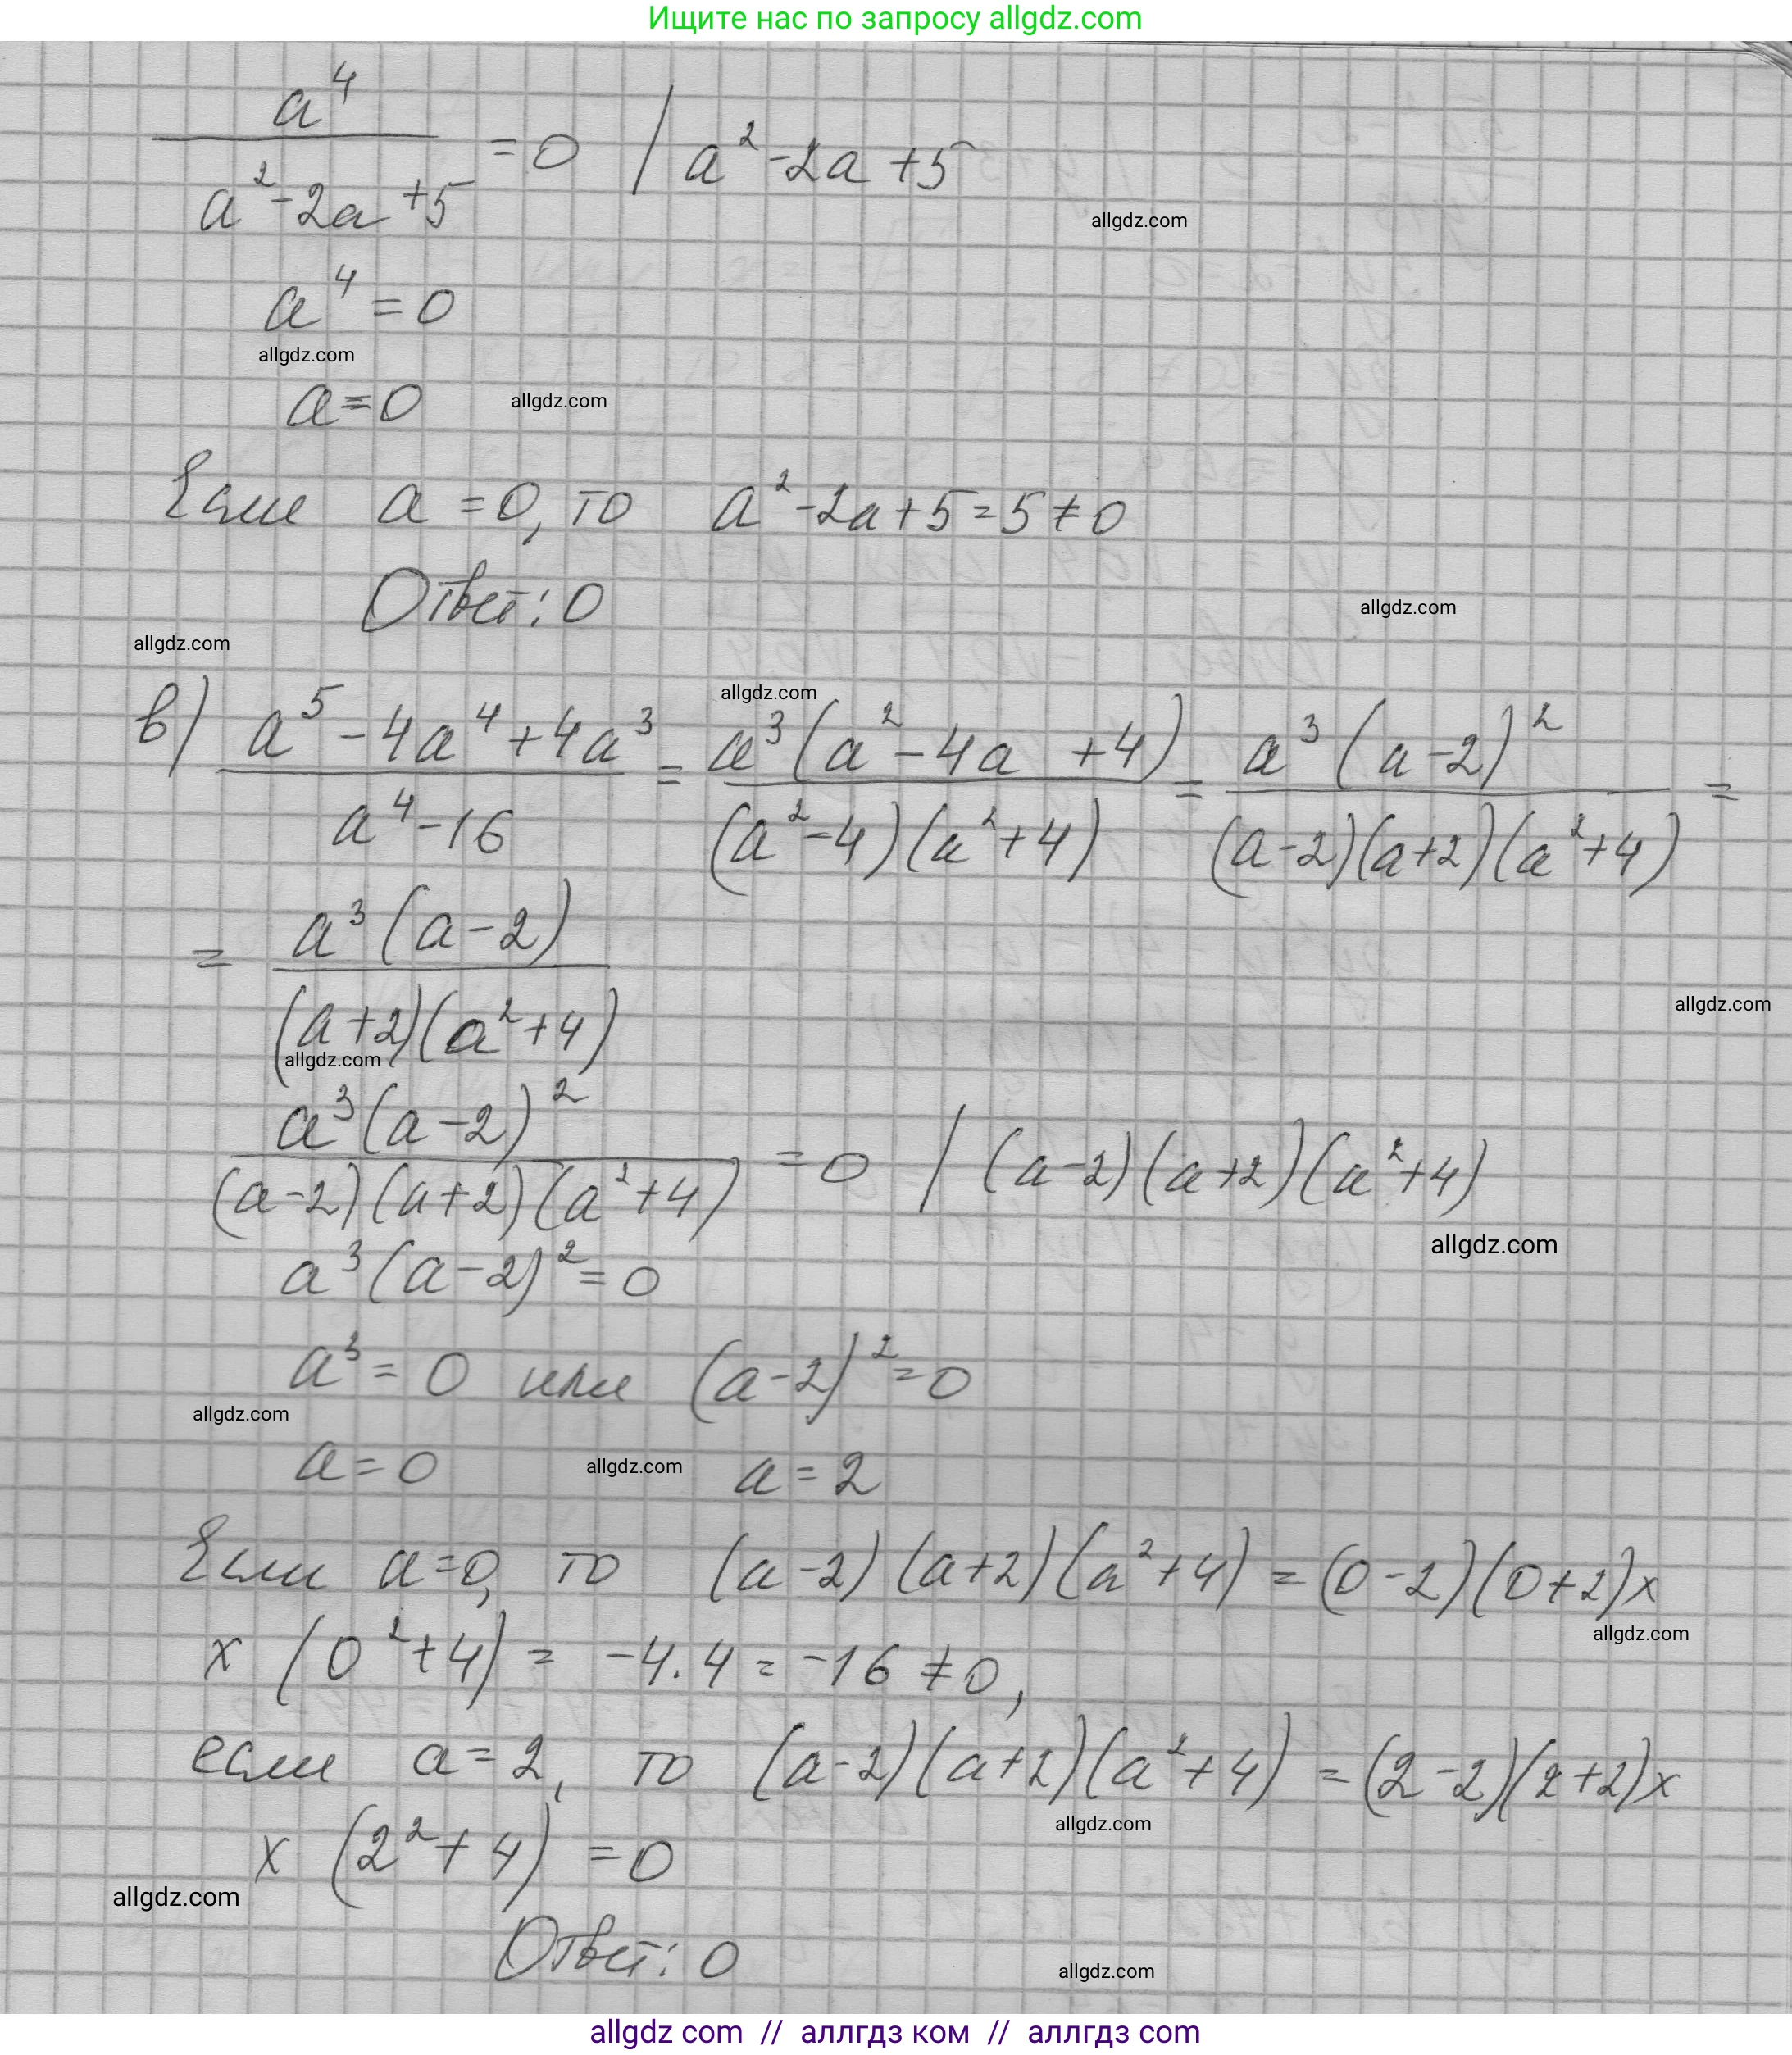 Ищите нас по запросу allgdz.com
a⁴
───────── = 0 | a² - 2a + 5
a² - 2a + 5
allgdz.com
a⁴ = 0
allgdz.com
a = 0
allgdz.com
Если a = 0, то a² - 2a + 5 = 5 ≠ 0
Ответ: 0
allgdz.com
allgdz.com
allgdz.com
в) (a⁵ - 4a⁴ + 4a³)/(a⁴ - 16) = (a³(a² - 4a + 4))/((a² - 4)(a² + 4)) = (a³(a - 2)²)/((a - 2)(a + 2)(a² + 4)) =
= (a³(a - 2))/((a + 2)(a² + 4))
allgdz.com
allgdz.com
(a³(a - 2)²)/((a - 2)(a + 2)(a² + 4)) = 0 | (a - 2)(a + 2)(a² + 4)
allgdz.com
a³(a - 2)² = 0
a³ = 0 или (a - 2)² = 0
allgdz.com
a = 0 allgdz.com a = 2
Если a = 0, то (a - 2)(a + 2)(a² + 4) = (0 - 2)(0 + 2) ×
allgdz.com
× (0² + 4) = -4 · 4 = -16 ≠ 0,
если a = 2, то (a - 2)(a + 2)(a² + 4) = (2 - 2)(2 + 2) ×
allgdz.com
× (2² + 4) = 0
allgdz.com
Ответ: 0
allgdz.com
allgdz com // аллгдз ком // аллгдз com